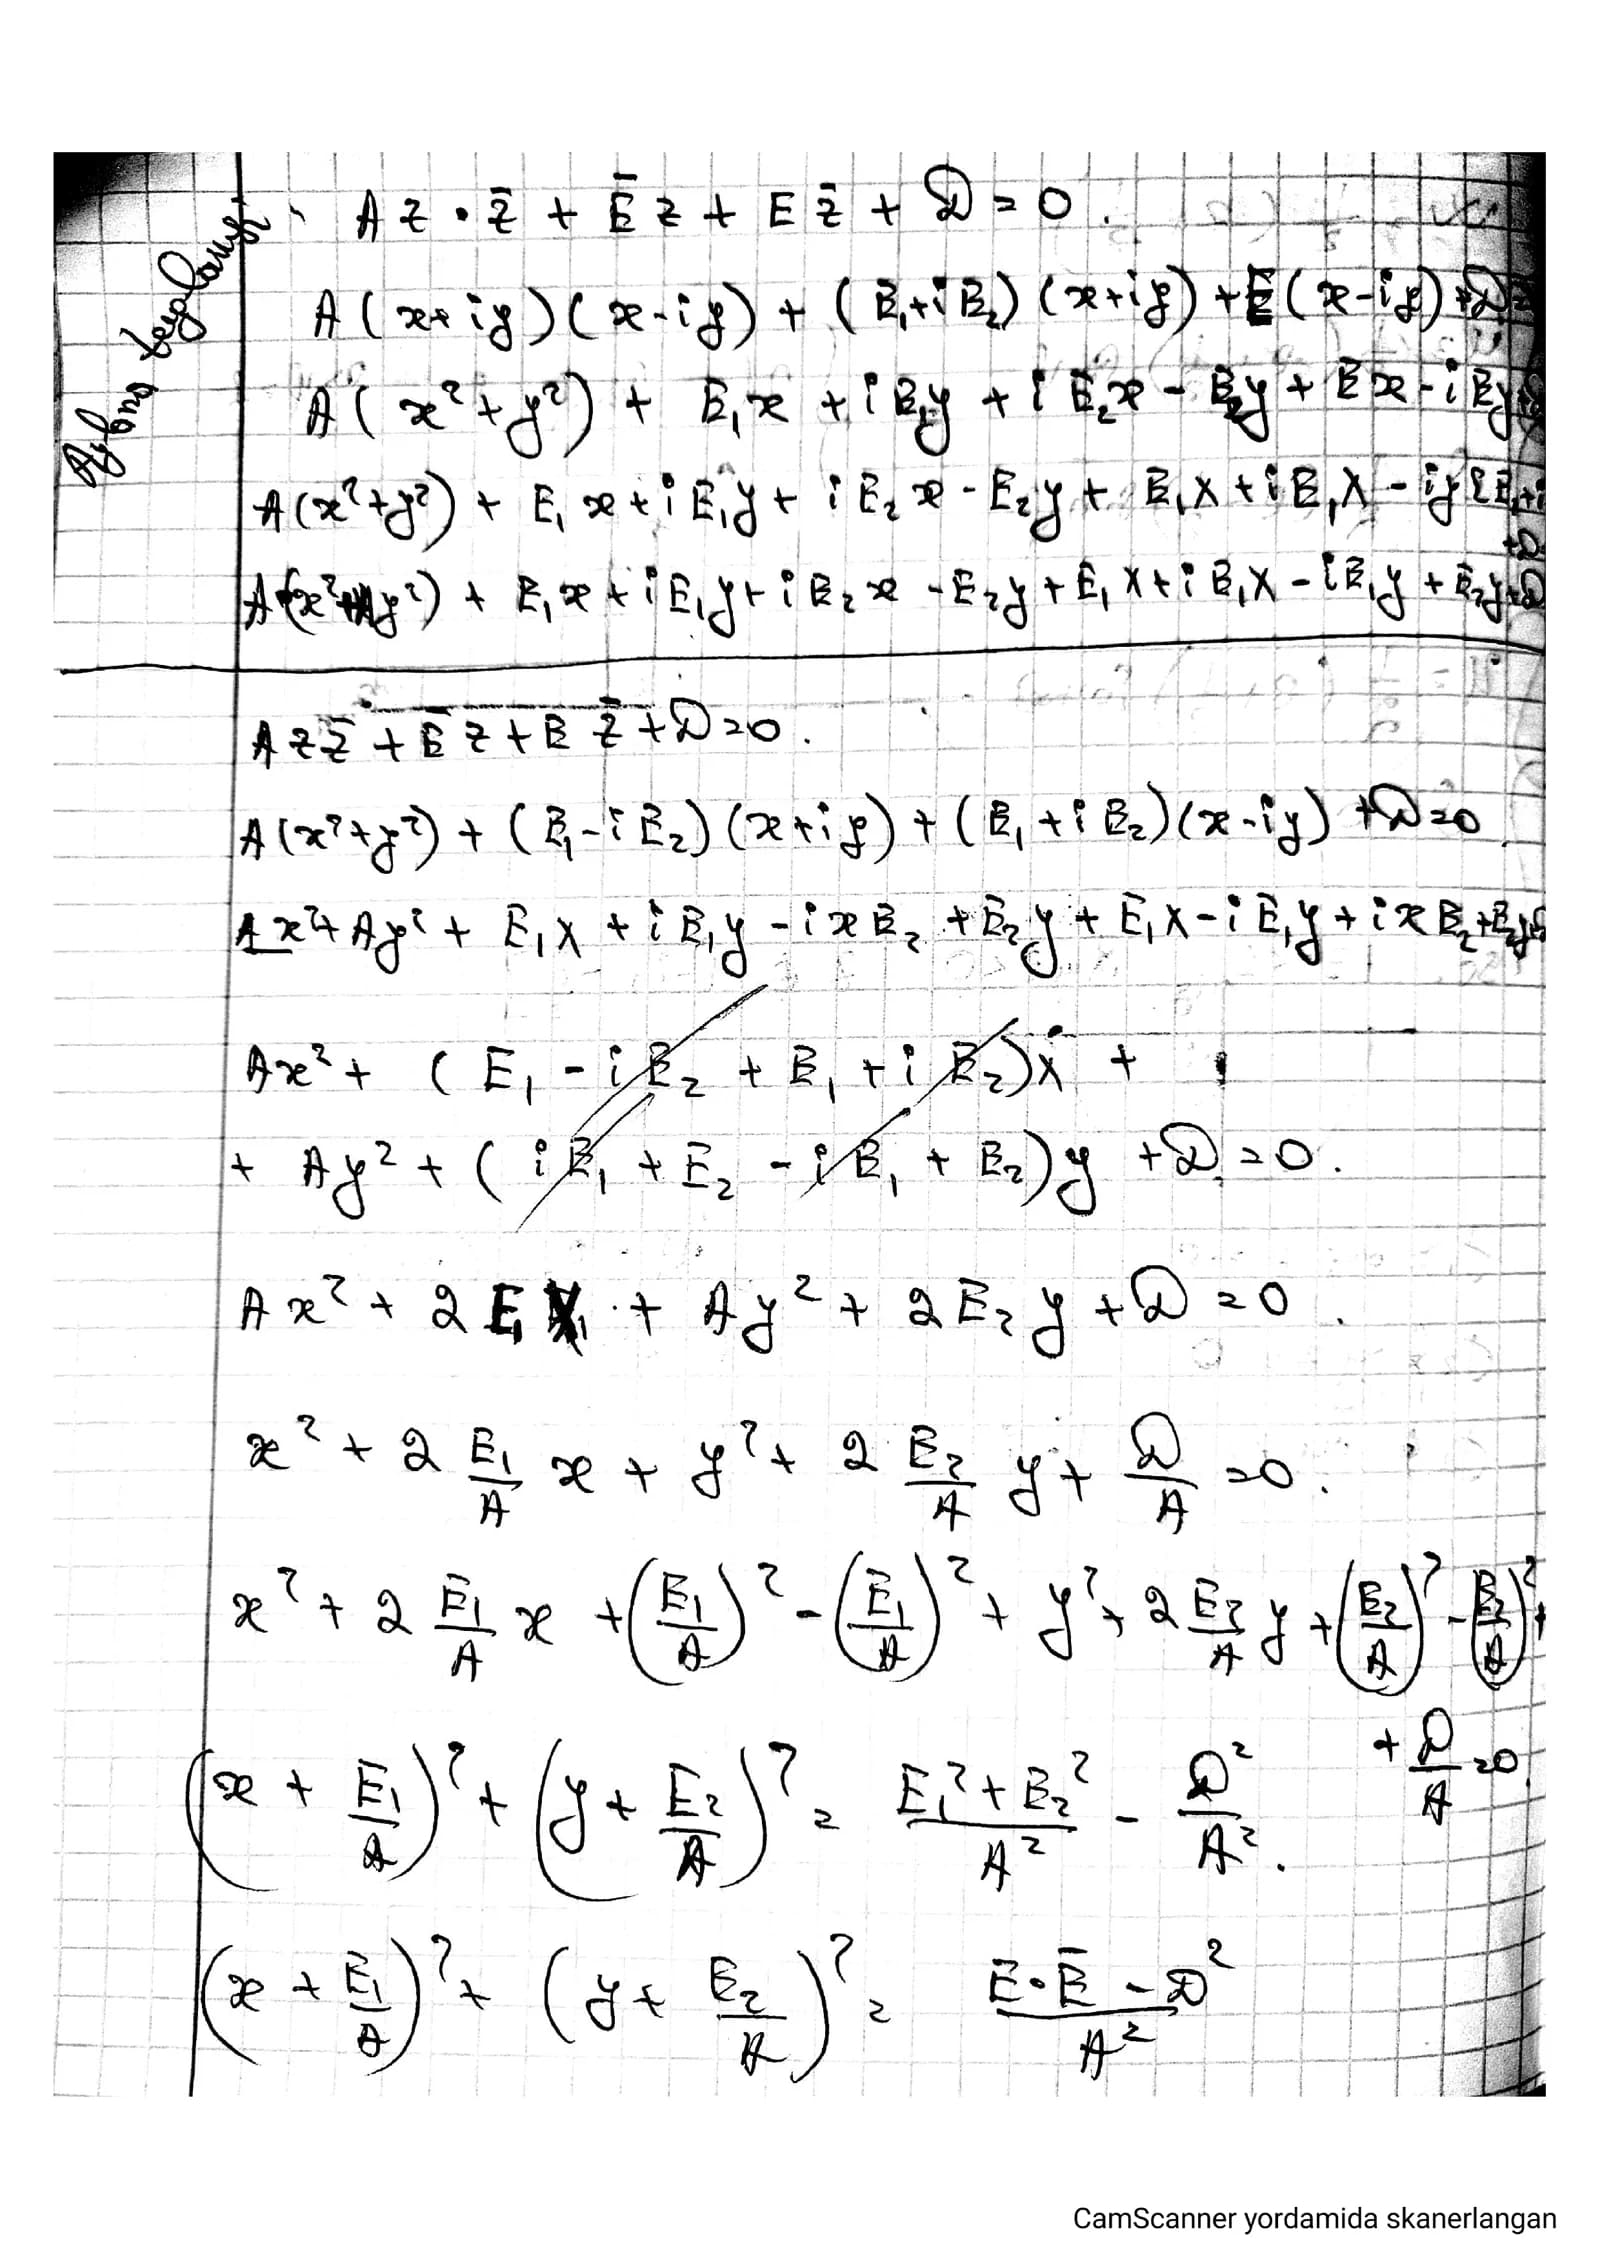 A z · z̄ + Ē z + E z̄ + D = 0.
A(x+iy)(x-iy) + (E₁+iE₂)(x+iy) + E(x-iy) + D =
A(x²+y²) + E₁x + iE₁y + iE₂x - E₂y + Ex - iEy
A(x²+y²) + E₁x + iE₁y + iE₂x - E₂y + E₁x + iE₁x - iy(E₁+i
A(x²+y²) + E₁x + iE₁y + iE₂x - E₂y + E₁x + iE₁x - iE₁y + E₂y+D
A z z̄ + Ē z + E z̄ + D = 0.
A(x²+y²) + (E₁-iE₂)(x+iy) + (E₁+iE₂)(x-iy) + D = 0
Ax² + Ay² + E₁x + iE₁y - ixE₂ + E₂y + E₁x - iE₁y + ixE₂+E₂y
Ax² + (E₁ - iE₂ + E₁ + iE₂)x +
+ Ay² + (iE₁ + E₂ - iE₁ + E₂)y + D = 0.
Ax² + 2E₁x + Ay² + 2E₂y + D = 0.
x² + 2 E₁/A x + y² + 2 E₂/A y + D/A = 0.
x² + 2 E₁/A x + (E₁/A)² - (E₁/A)² + y² + 2 E₂/A y + (E₂/A)² - (E₂/A)² +
+ D/A = 0.
(x + E₁/A)² + (y + E₂/A)² = (E₁² + E₂²)/A² - D²/A².
(x + E₁/A)² + (y + E₂/A)² = (E·Ē - D²)/A²
CamScanner yordamida skanerlangan